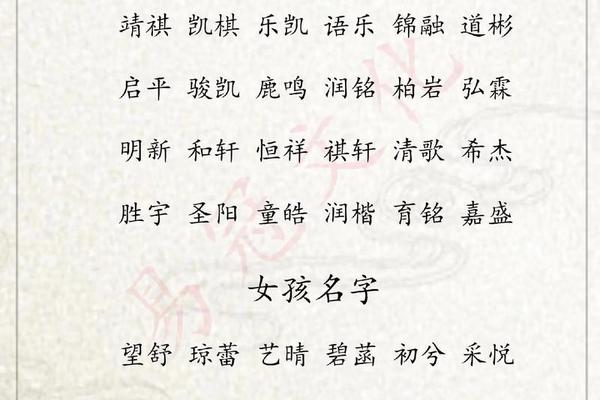 靖祺 凯棋 乐凯 语乐 锦融 道彬
启平 骏凯 鹿鸣 润铭 柏岩 弘霖
明新 和轩 恒祥 祺轩 清歌 希杰
胜宇 圣阳 童皓 润楷 育铭 嘉盛
女孩名字
望舒 琼蕾 艺晴 碧菡 初兮 采悦
易冠文化